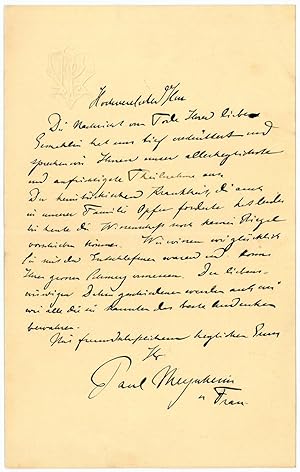 Hochverehrter Herr
Die Nachricht vom Tode Ihrer lieben
Gemahlin hat uns tief erschüttert und
sprechen wir Ihnen unser allerherzlichste
und aufrichtigste Theilnahme aus.
Die heimtückische Krankheit, die auch
in unserer Familie Opfer forderte hat leider
bis heute die Wissenschaft noch keinen Riegel
vorschieben können. Wir wissen wie glücklich
Sie mit der Entschlafenen waren und
Ihren ganzen Schmerz ermessen. Die liebens-
würdigen Dahingeschiedener werden auch wir
wie alle die sie kannten das beste Andenken
bewahren.
Mit freundschaftlichem herzlichen Gruss
Ihr
Paul Meyerheim
u Frau.